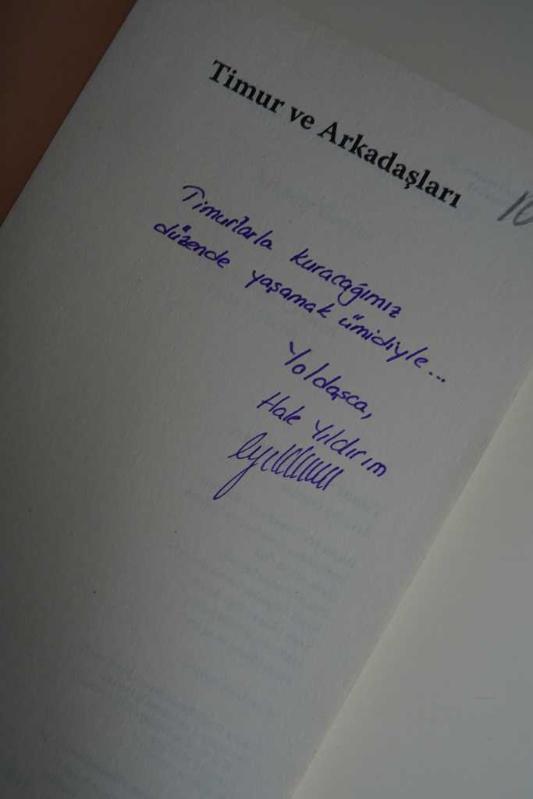 Timur ve Arkadaşları
10
Timur'larla kuracağımız
düzende yaşamak ümidiyle...
Yoldaşca,
Hale Yıldırım